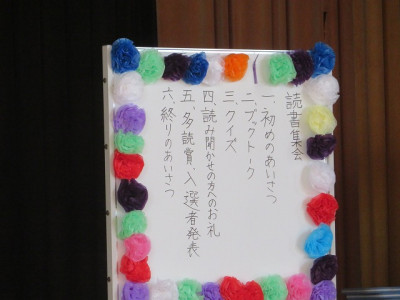 読書集会
一、初めのあいさつ
二、ブックトーク
三、クイズ
四、読み聞かせの方へのお礼
五、多読賞、入選者発表
六、終りのあいさつ